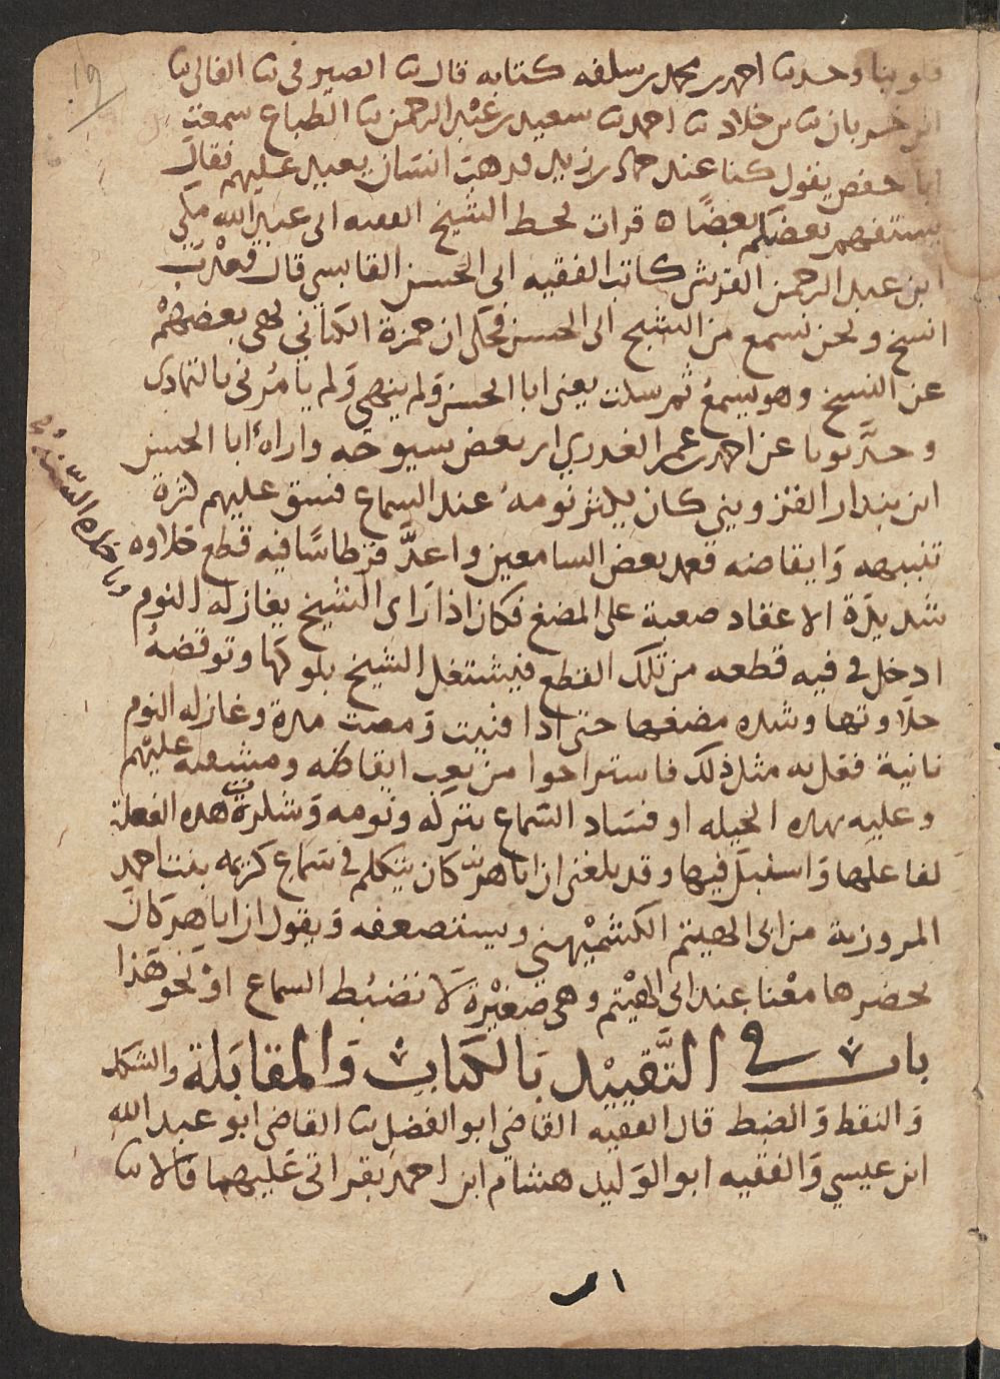 قلوبنا وحدثنا احمد بن محمد بن سلفه كتابه قال ثنا الصيرفي ثنا الفالي ثنا
ابن خربان ثنا بن خلاد ثنا احمد ثنا سعيد بن عبد الرحمن ثنا الطباع سمعت
ابا حفص يقول كنا عند حماد بن زيد فذهب انسان يعيد عليهم فقال
يستفهم بعضكم بعضًا ه قرات بخط الشيخ الفقيه ابى عبد الله مكي
ابن عبد الرحمن القرشي كاتب الفقيه ابى الحسن القابسي قال قعدت
انسخ ونحن نسمع من الشيخ ابى الحسن فحكى ان حمزة الكناني نهى بعضهم
عن النسخ وهو يسمع ثم سكت يعنى ابا الحسن ولم ينهني ولم يامرني بالتمادى
وحدثونا عن احمد بن عمر العذري ان بعض شيوخه واراه ابا الحسن
ابن بندار القزويني كان يكثر نومه عند السماع فشق عليهم كثرة
تنبيهه وايقاضه فعمد بعض السامعين واعد قرطاسًا فيه قطع حلاوه
شديدة الاعقاد صعبة على المضغ فكان اذا راى الشيخ يغازله النوم
ادخل في فيه قطعه من تلك القطع فيشتغل الشيخ بلوكها وتوقضه
حلاوتها وشده مضغها حتى اذا فنيت ومضت مدة وغازله النوم
ثانية فعل به مثل ذلك فاستراحوا من تعب ايقاظه ومشقته عليهم
وعليه بهذه الحيله او فساد السماع بتركه ونومه وشكرت هذه الفعلة
لفاعلها واستنبل فيها وقد بلغني ان اباهر كان يتكلم في سماع كريمه بنت احمد
المروزية من ابى الهيثم الكشميهني ويستضعفه ويقول ان اباها كان
يحضرها معنا عند ابى الهيثم وهي صغيرة لا تضبط السماع او نحو هذا
باب في التقييد بالكتاب والمقابلة والشكل
والنقط والضبط قال الفقيه القاضي ابو الفضل ثنا القاضى ابو عبد الله
ابن عيسي والفقيه ابو الوليد هشام ابن احمد بقراتى عليهما قالا ثنا